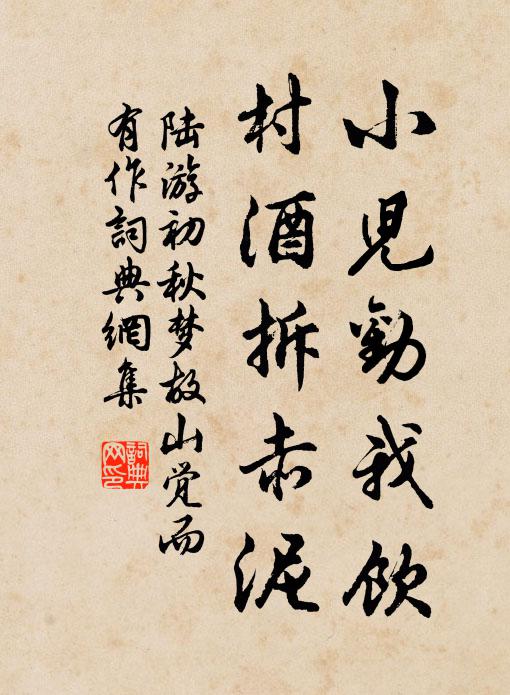 小児勸我飲
村酒拆赤泥
陆游初秋梦故山觉而
有作詞典網集
詞典
网印